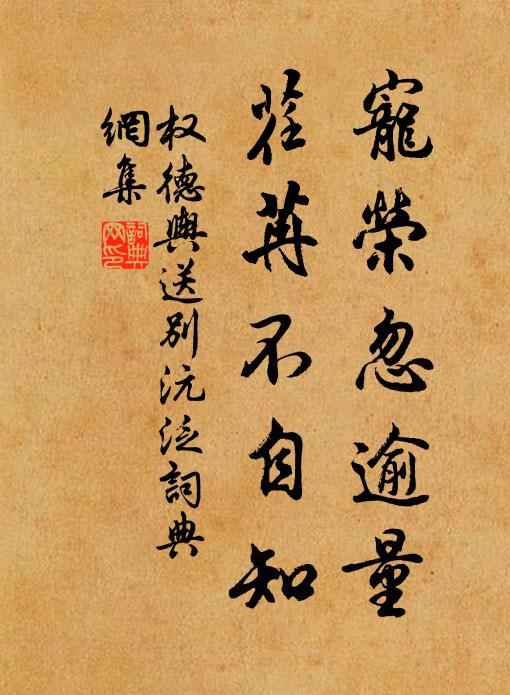 寵榮忽逾量
荏苒不自知
权德輿送別沅泛詞典
網集
詞典
网印